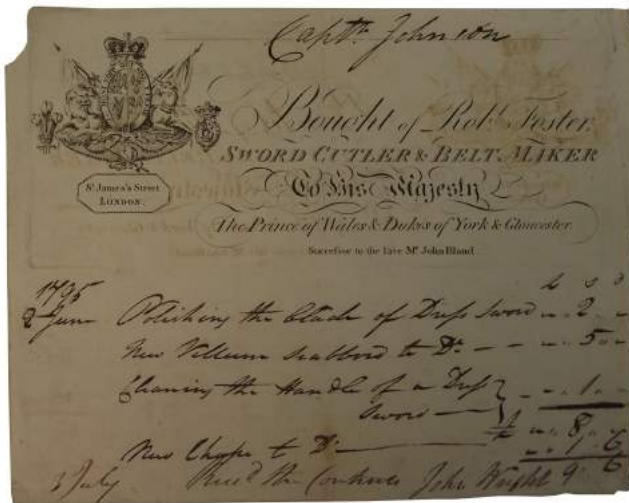 Captn. Johnson
Bought of Robt. Foster,
SWORD CUTLER & BELT MAKER
To His Majesty
The Prince of Wales & Dukes of York & Gloucester.
Successor to the late Mr. John Bland
St. James's Street
LONDON.
£ s d
1795
2 June Polishing the blade of Dress Sword " 2 "
New Vellum Scabbord to Do. — — " 5 "
Cleaning the Handle of a Dress
Sword — " 1 "
" 8 "
New Chape to Do. — " 1 " 6
3 July Recd. the Contents John Wright 9 " 6